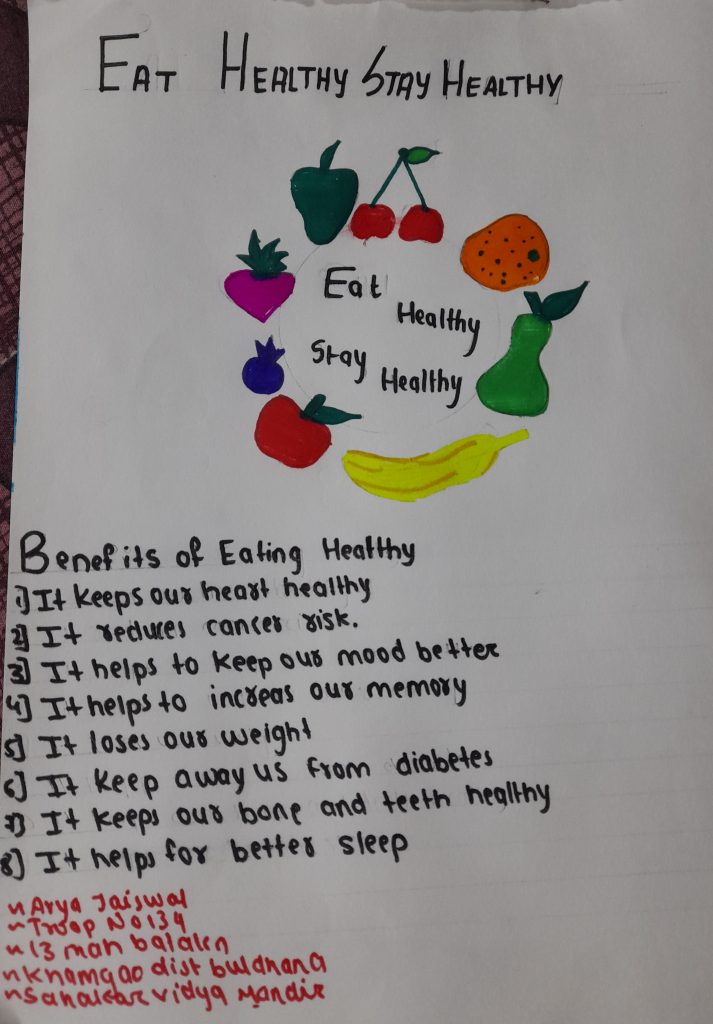 EAT HEALTHY STAY HEALTHY
Eat
Healthy
Stay
Healthy
Benefits of Eating Healthy
1] It keeps our heart healthy
2] It reduces cancer risk.
3] It helps to keep our mood better
4] It helps to increas our memory
5] It loses our weight
6] It keep away us from diabetes
7] It keeps our bone and teeth healthy
8] It helps for better sleep
~ Arya Jaiswal
~ Troop No 134
~ 13 mah
~ Khamgao dist buldhana
~ Sahakar vidya Mandir